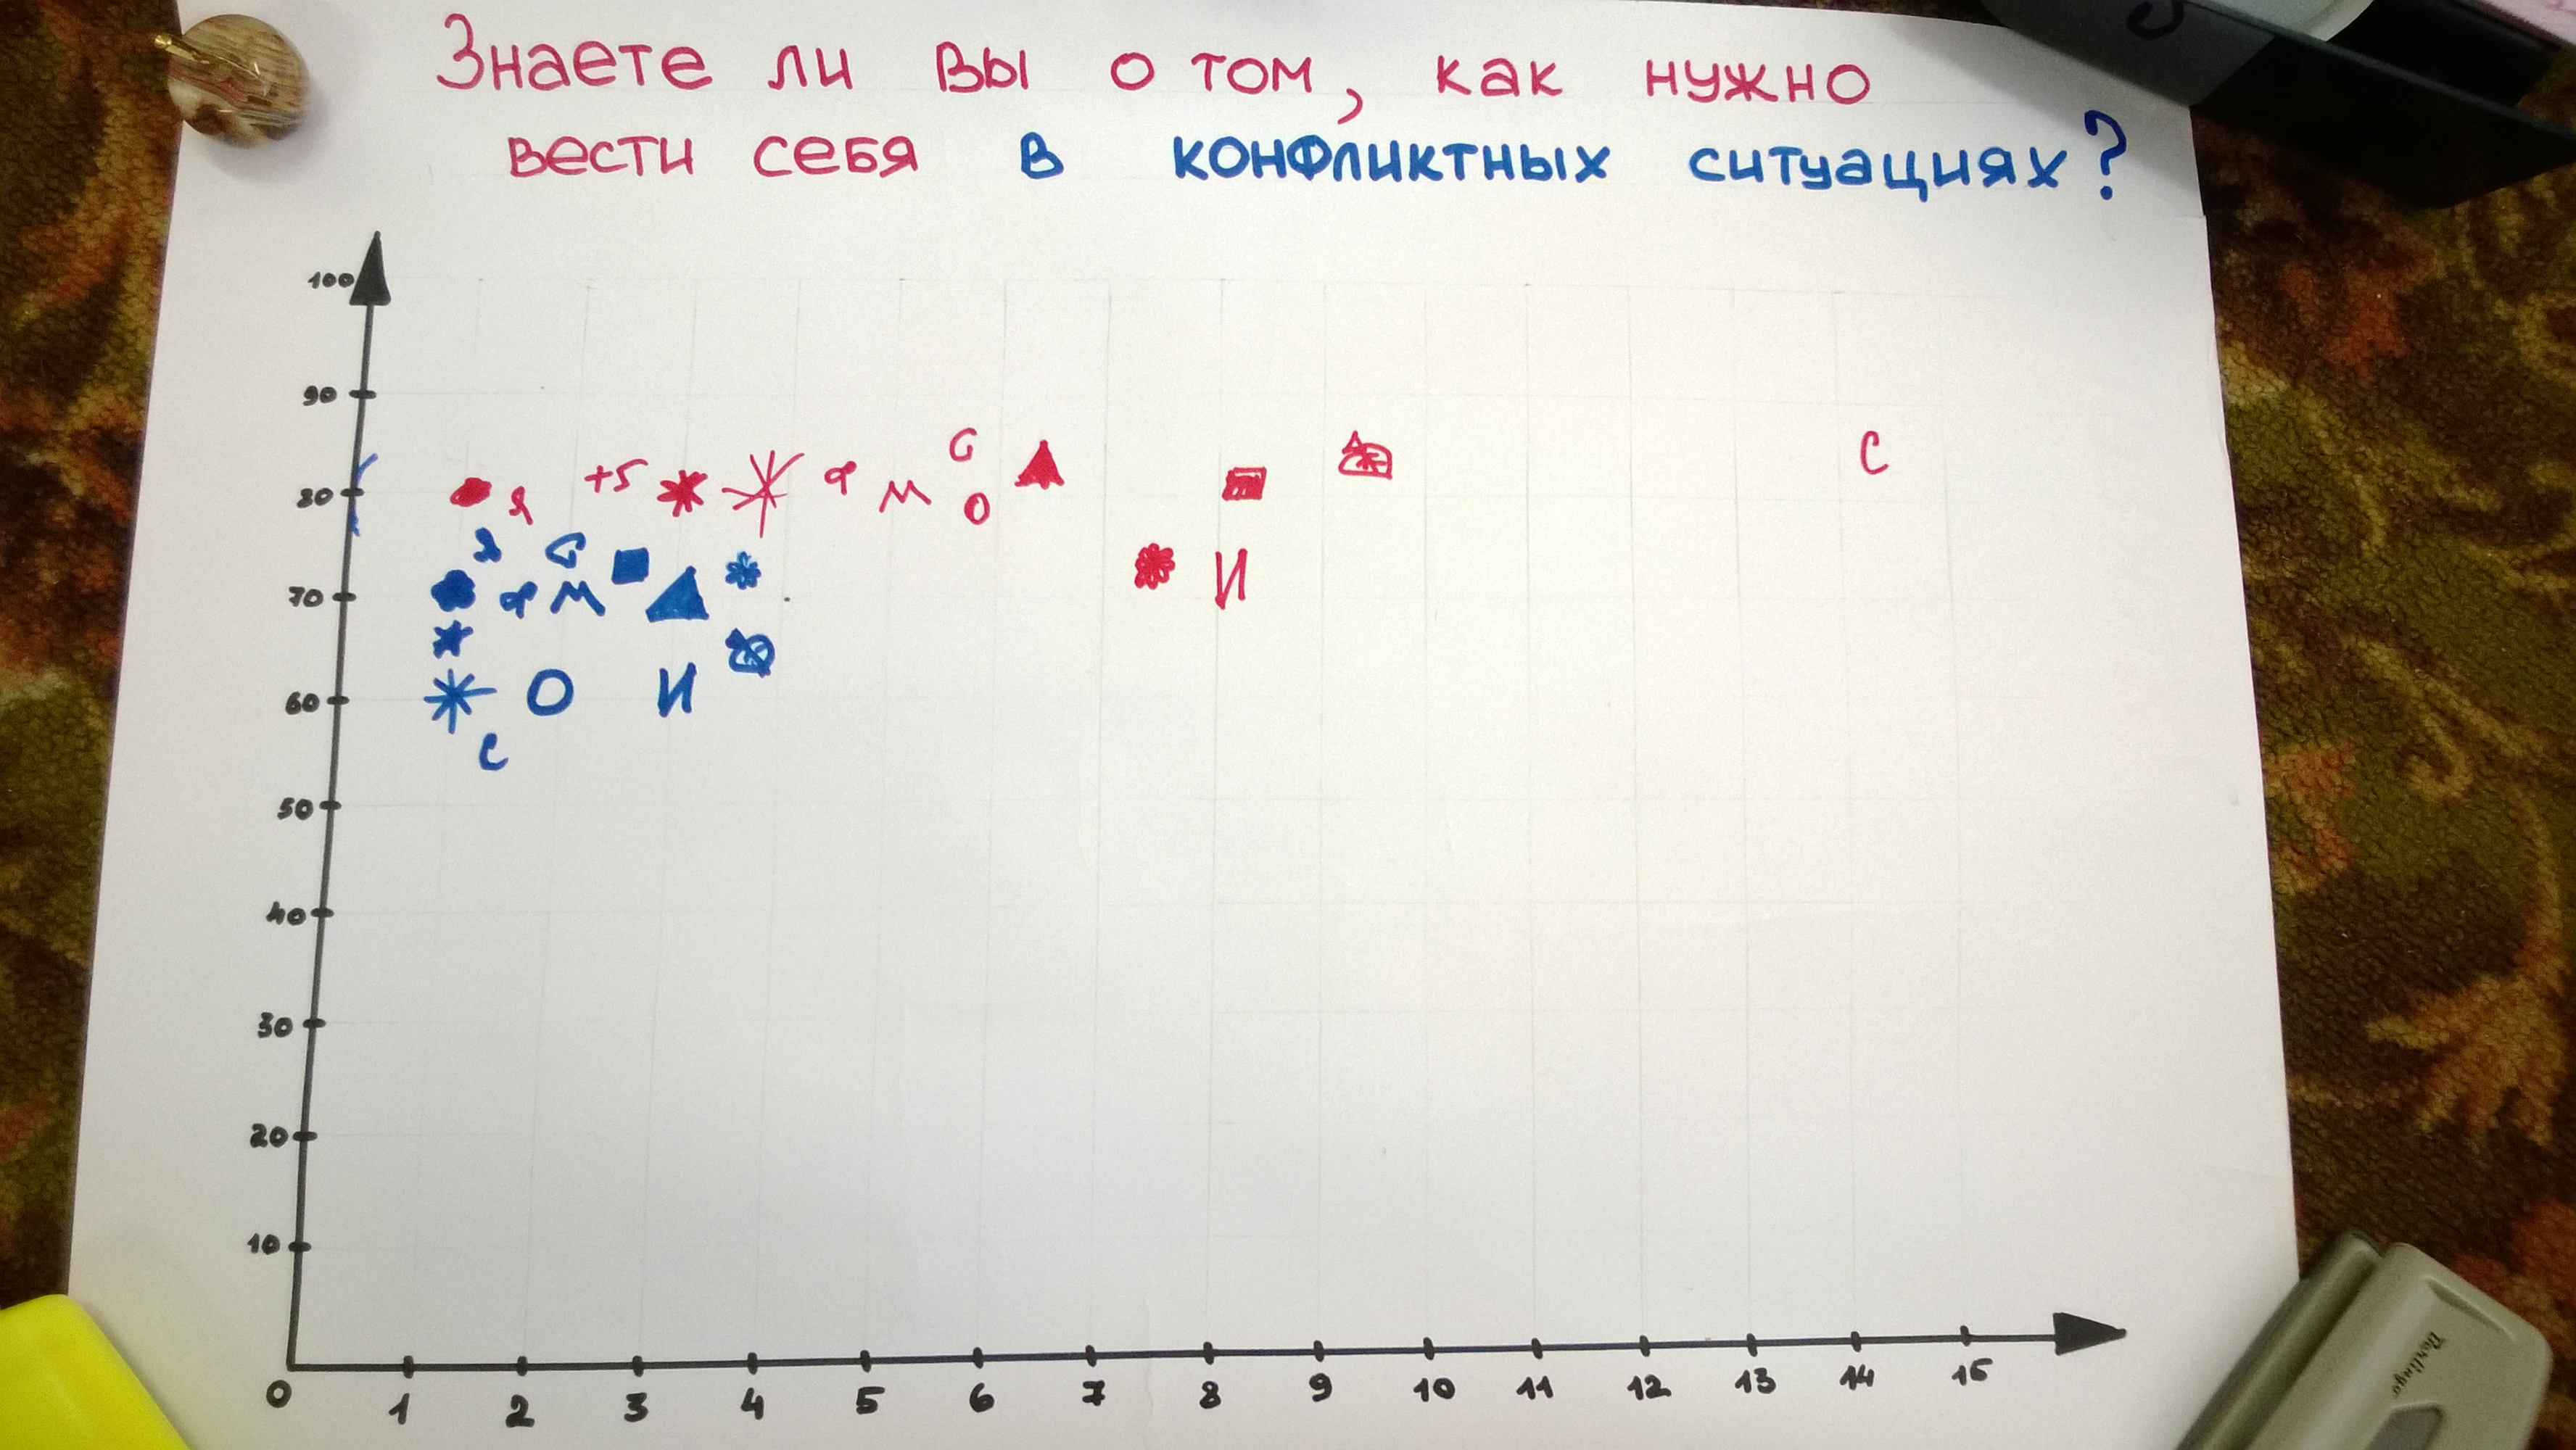 Знаете ли вы о том, как нужно
вести себя в конфликтных ситуациях?
100
90
80
70
60
50
40
30
20
10
0 1 2 3 4 5 6 7 8 9 10 11 12 13 14 15
С
+5 С
я М О
И
я
М
О И
С
Berlingo